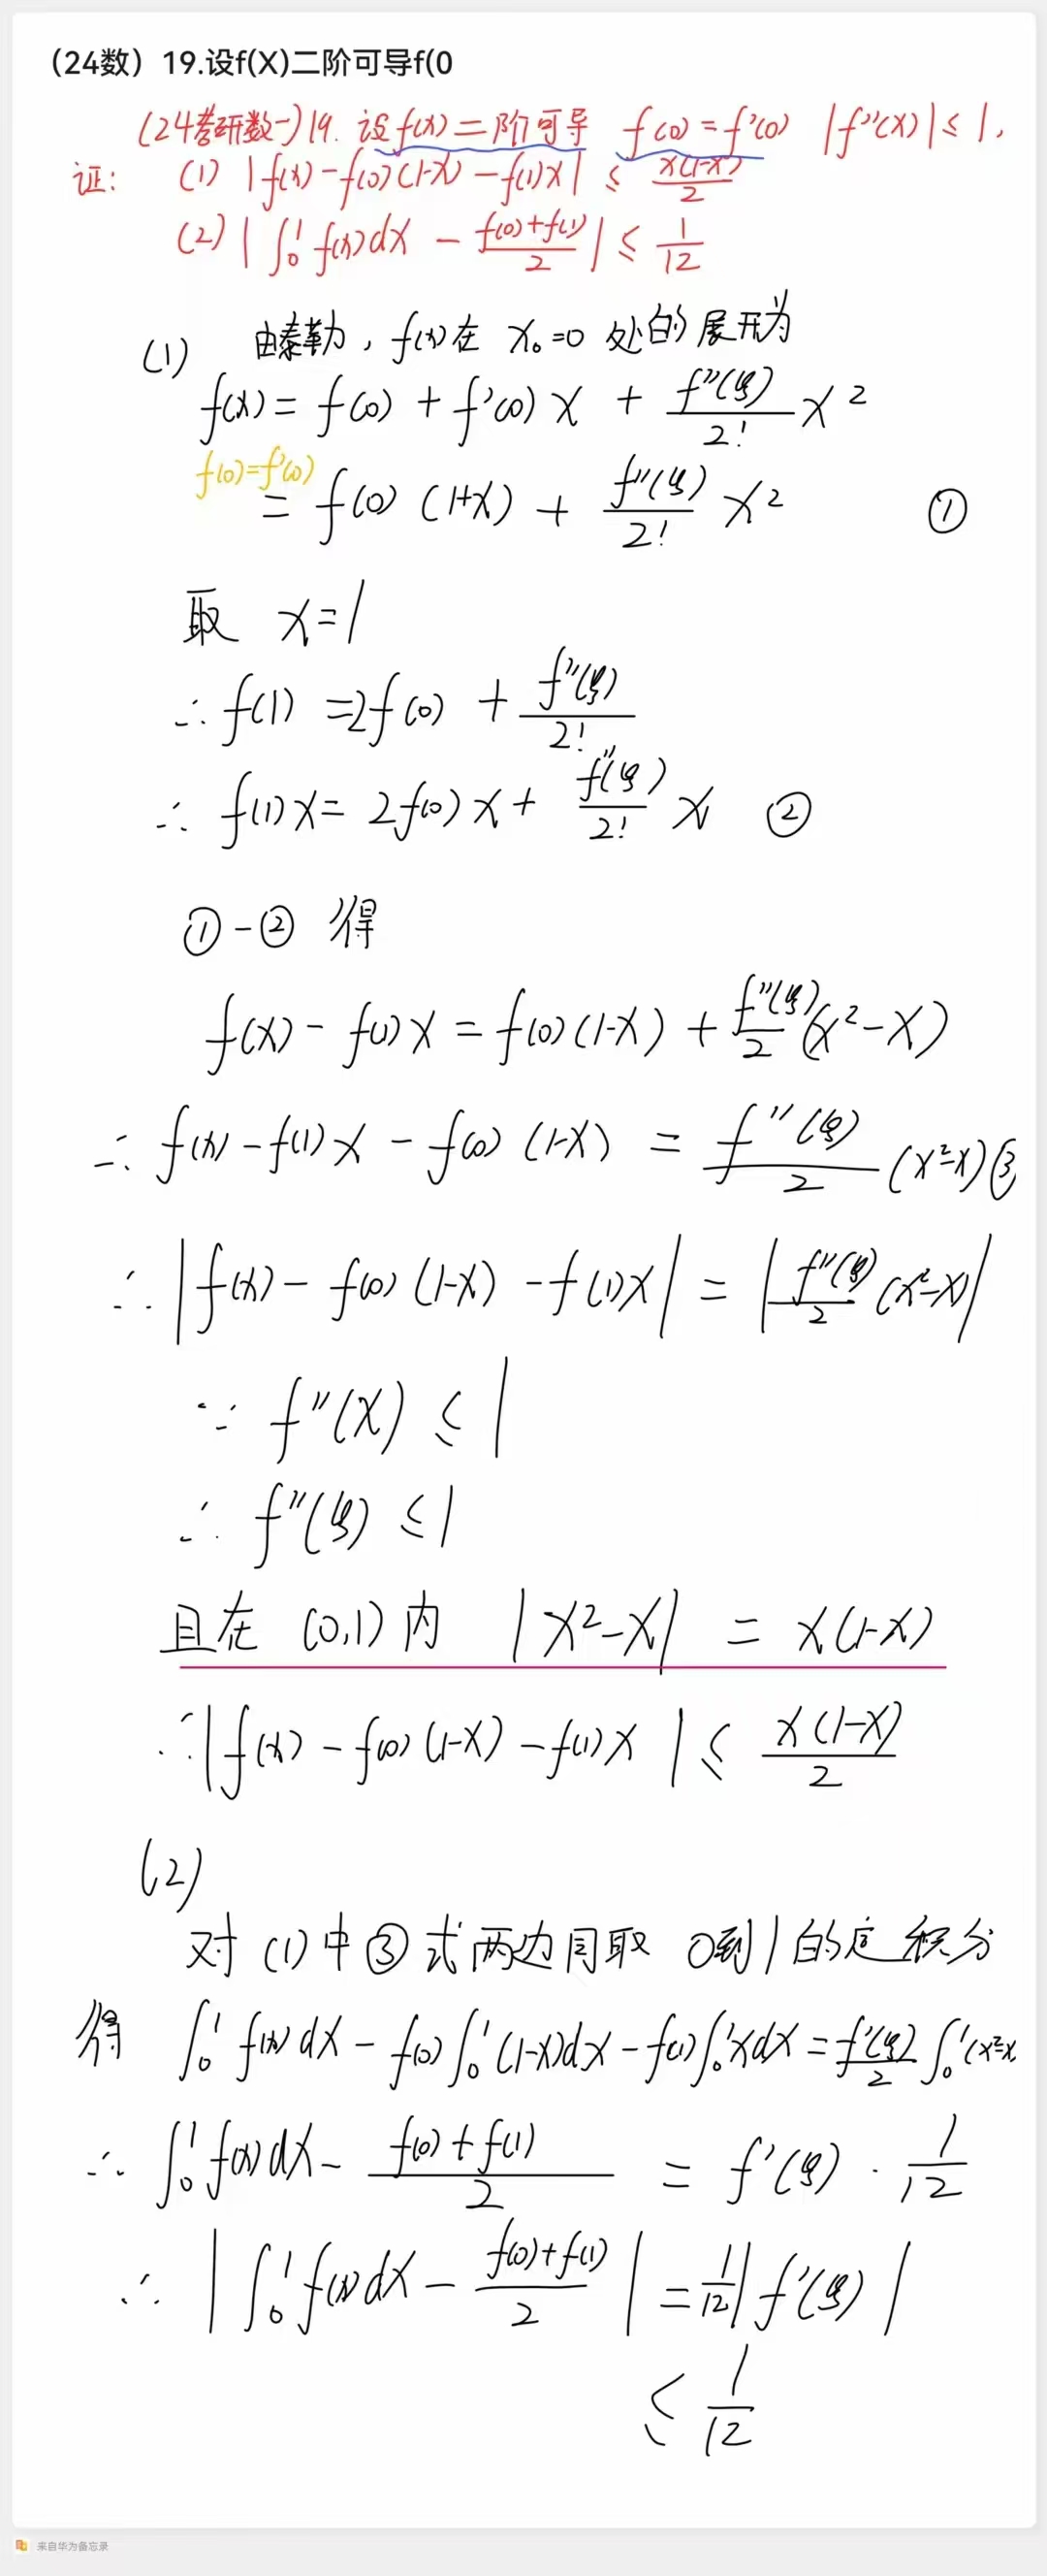 （24数）19.设f(X)二阶可导f(0
(24考研数一)19. 设f(x)二阶可导 f(0)=f'(0) |f''(x)|≤1,
证: (1) |f(x)-f(0)(1-x)-f(1)x| ≤ x(1-x)/2
(2) |∫₀¹f(x)dx - (f(0)+f(1))/2| ≤ 1/12
(1) 由泰勒, f(x)在 x₀=0 处的展开为
f(x)= f(0) + f'(0)x + f''(ξ)/2! x²
f(0)=f'(0)
= f(0)(1+x) + f''(ξ)/2! x² ①
取 x=1
∴ f(1) =2f(0) + f''(ξ)/2!
∴ f(1)x= 2f(0)x+ f''(ξ)/2! x ②
①-② 得
f(x)- f(1)x = f(0)(1-x) + f''(ξ)/2 (x²-x)
∴ f(x)-f(1)x - f(0)(1-x) = f''(ξ)/2 (x²-x) ③
∴ |f(x)- f(0)(1-x)-f(1)x| = |f''(ξ)/2 (x²-x)|
∵ f''(x) ≤ 1
∴ f''(ξ) ≤1
且在 (0,1)内 |x²-x| = x(1-x)
∴|f(x)-f(0)(1-x)-f(1)x| ≤ x(1-x)/2
(2)
对(1)中③式两边同取 0到1的定积分
得 ∫₀¹f(x)dx - f(0)∫₀¹(1-x)dx - f(1)∫₀¹xdx = f'(ξ)/2 ∫₀¹(x²-x
∴ ∫₀¹f(x)dx - (f(0)+f(1))/2 = f'(ξ) · 1/12
∴ |∫₀¹f(x)dx - (f(0)+f(1))/2| = 1/12|f'(ξ)|
≤ 1/12
来自华为备忘录